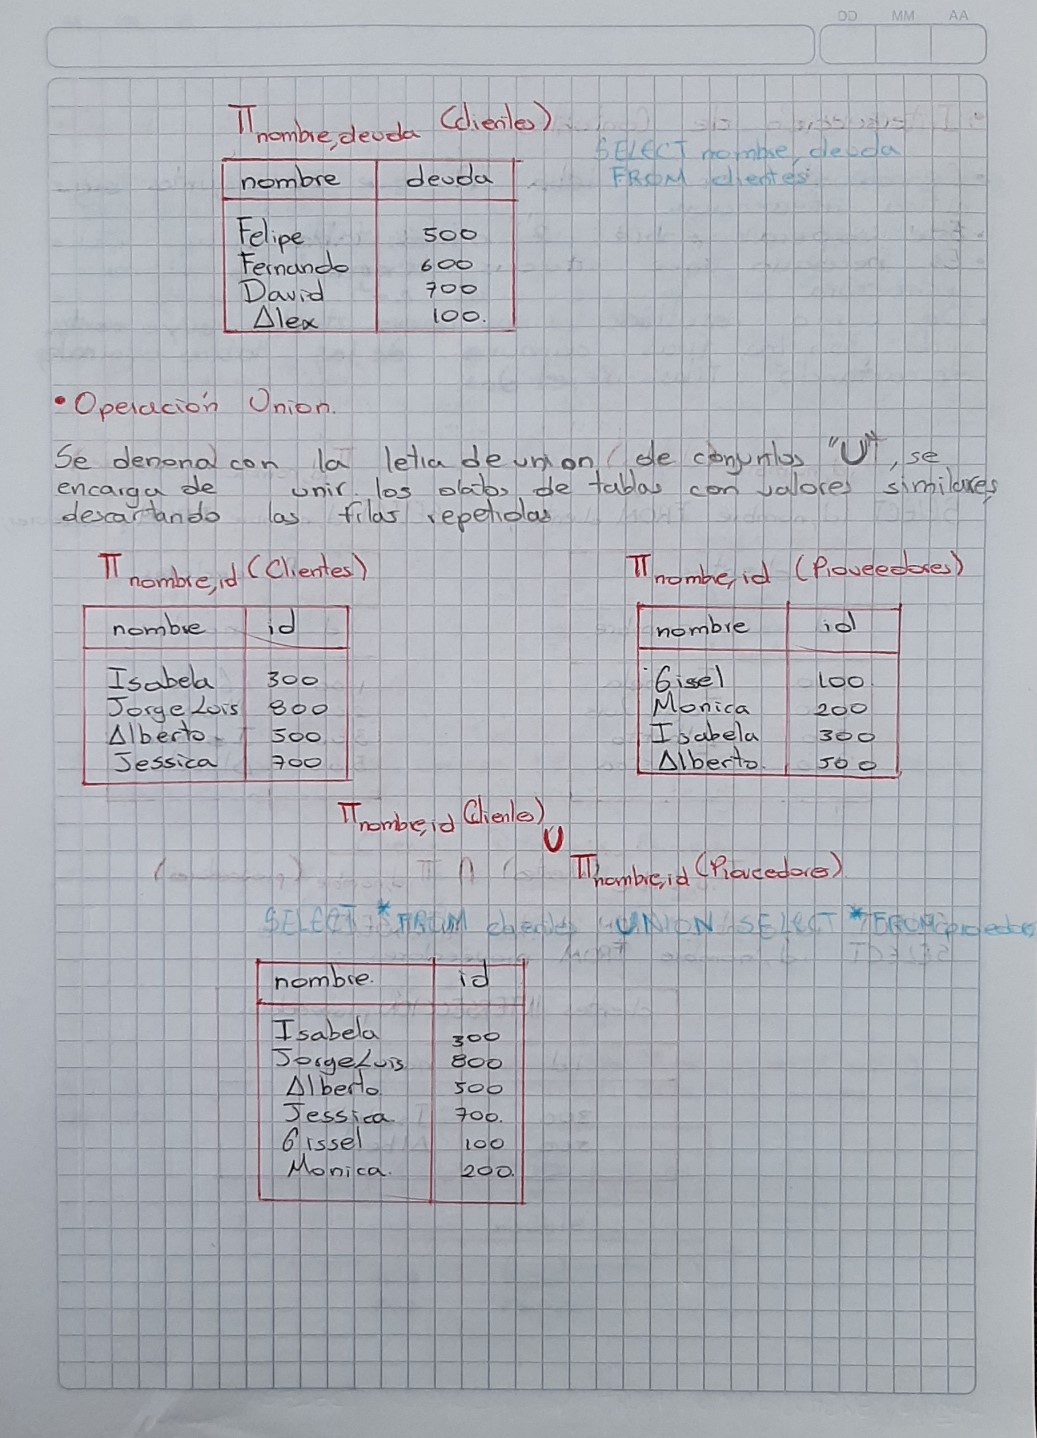 DD MM AA
π nombre,deuda (clientes)
SELECT nombre, deuda
FROM clientes
nombre deuda
Felipe 500
Fernando 600
David 700
Alex 100.
• Operación Union.
Se denona con la letra de union de conjuntos "U", se
encarga de unir los datos de tablas con valores similares,
descartando las filas repetidas
π nombre,id (Clientes)
nombre id
Isabela 300
Jorge Luis 800
Alberto 500
Jessica 700
π nombre, id (Proveedores)
nombre id
Gisel 100
Monica 200
Isabela 300
Alberto. 500
π nombre,id (Clientes)
U
π nombre,id (Proveedores)
SELECT * FROM clientes UNION SELECT * FROM
nombre. id
Isabela 300
Jorge Luis 800
Alberto 500
Jessica 700.
Gissel 100
Monica. 200.